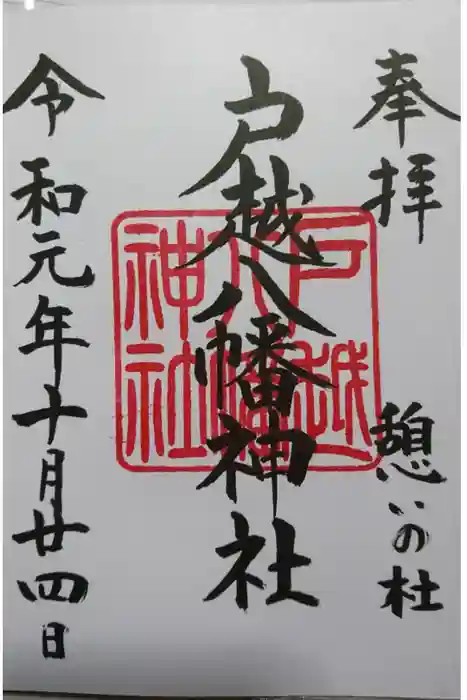 奉拝 憩いの杜
戸越八幡神社
戸越
八幡
神社
令和元年十月廿四日